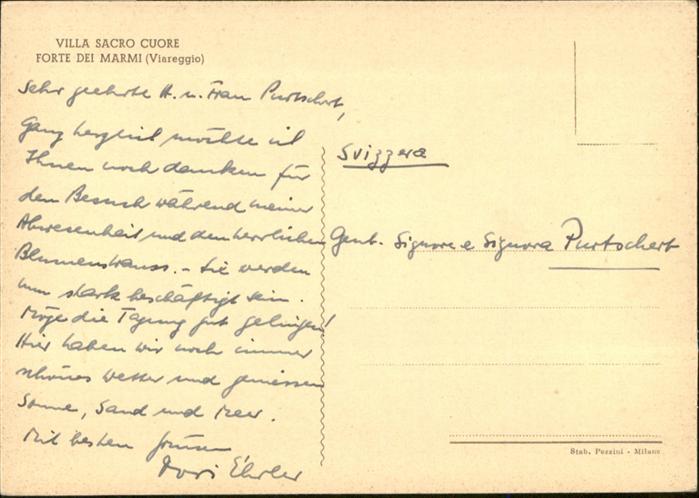 VILLA SACRO CUORE
FORTE DEI MARMI (Viareggio)
Sehr geehrte H. u. Frau Purtschert,
Ganz herzlich möchte ich
Ihnen noch danken für
den Besuch während meiner
Abwesenheit und den herrlichen
Blumenstrauss. – Sie werden
nun stark beschäftigt sein.
Möge die Tagung gut gelingen!
Hier haben wir noch immer
schönes Wetter und geniessen
Sonne, Sand und Meer.
Mit besten Grüssen
Dori Ehrler
Svizzera
Gent. Signore e Signora Purtschert
Stab. Pezzini - Milano